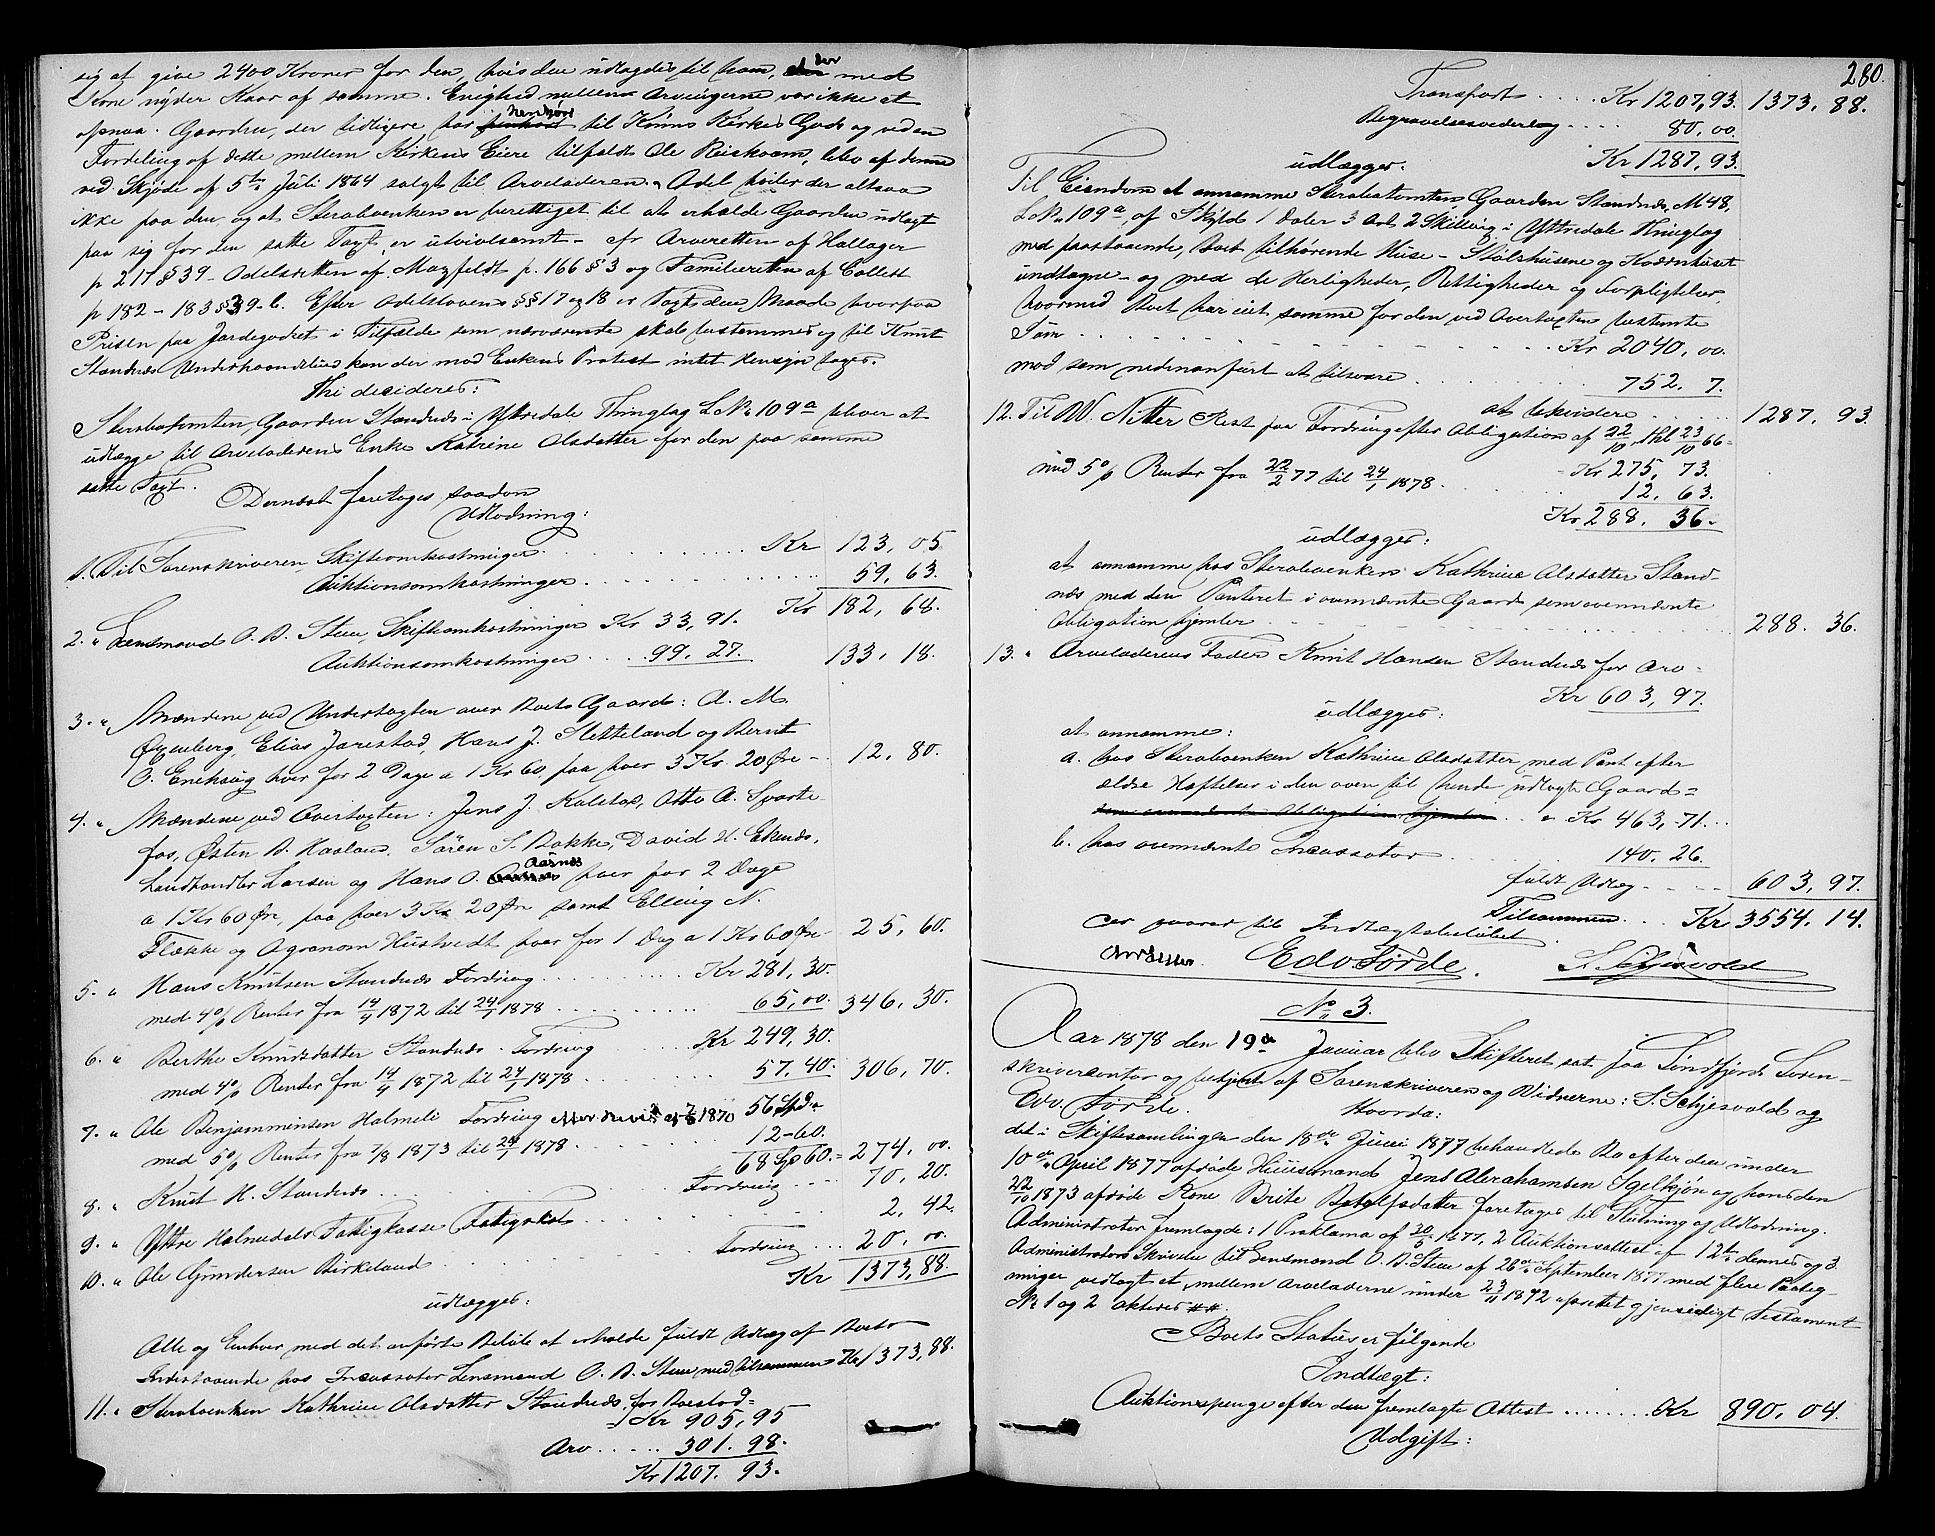 sig at give 2400 Kroner for den, hvis den udlagdes til ham, der med
Kone nyder Kaar af samme. Enighed mellem Arvingerne var ikke at
opnaa. Gaarden, der tidligere har henhørt til Kinns Kirkes Gods og ved en
Fordeling af dette mellem Kirkens Eiere tilfaldt Ole Reiskvam, blev af denne
ved Skjøde af 5te Juli 1864 solgt til Arveladeren. Odel hviler der altsaa
ikke paa den, og at Sterboenken er berettiget til at erholde Gaarden udlagt
paa sig for den satte Taxt er utvivlsomt – cfr Arveretten af Hallager
p 217 § 39 – Odelsretten af Mazfeldt p. 166 § 3 og Familieretten af Collett
p 182 – 183 § 39 – b. Efter Odelslovens §§ 17 og 18 er Taxt den Maade hvorpaa
Prisen paa Jordegodset i Tilfælde som nærværende skal bestemmes og til Knut
Standnæs Underhaandsbud kan der mod Enkens Protest intet Hensyn tages.
Thi decideres:
Sterbotomten Gaarden Standnæs i Yttredale Thinglag L No 109a bliver at
udlægge til Arveladerens Enke Katrine Olsdatter for den paa samme
satte Taxt.
Dernæst foretoges saadan
Udlodning:
1. Til Sorenskriveren Skifteomkostninger . . . Kr 123, 05
Auktionsomkostninger . . . 59, 63.
Kr 182, 68.
2. " Lensmand O. D. Steen Skifteomkostninger Kr 33, 91.
Auktionsomkostninger . . . 99, 27. 133, 18.
3. " Mændene ved Undertaxten over Boets Gaard: A. M.
Øyenberg, Elias Jarestad, Hans J. Hetteland og Bernt
O. Enehaug hver for 2 Dage a 1 Kr 60, paa hver 3 Kr. 20 Øre – 12, 80.
4. " Mændene ved Overtaxten: Jens J. Kalstad, Otto A. Svorte-
fos, Østen B. Haaland, Søren S. Bakke, David H. Ekenæs,
Landhandler Larsen og Hans O. Aarnes hver for 2 Dage
a 1 Kr 60 Øre, paa hver 3 Kr 20 Øre samt Elling N.
Flække og Agronom Hustvedt hver for 1 Dag a 1 Kr 60 Øre 25, 60.
5. " Hans Knutsen Standnæs Fordring . . . Kr 281, 30.
med 4% Renter fra 14/4 1872 til 24/1 1878 . . . 65, 00. 346, 30.
6. " Berthe Knudsdatter Standnæs Fordring . . . Kr 249, 30.
med 4% Renter fra 14/4 1872 til 24/1 1878 . . . 57, 40. 306, 70.
7. " Ole Benjaminsen Halmeli Fordring efter Bevis af 7/8 1870 56 Spd "
med 5% Renter fra 7/8 1873 til 24/1 1878 . . . 12 – 60.
68 Sp 60. = 274, 00.
8. " Knut H. Standnæs . . . Fordring . . . 70, 20.
9. " Yttre Holmedals Fattigkasse Fattigskat . . . 2, 42.
10. " Ole Gundersen Birkeland . . . Fordring . . . 20, 00.
Kr 1373, 88.
udlægges:
Alle og Enhver med det anførte Beløb at erholde fuldt Udlæg af Boets
Indestaaende hos Incassator Lensmand O. D. Steen med tilsammen Kr 1373, 88.
11. " Sterboenken Kathrine Olsdatter Standnæs for Boeslod =
Kr 905, 95
Arv . . . 301. 98.
Kr 1207. 93.
280.
Transport . . . Kr 1207, 93. 1373. 88.
Begravelsesvederlag . . . 80, 00.
Kr 1287. 93.
udlægges.
Til Eiendom at annamme Sterbotomten Gaarden Standnæs, M 48,
L No 109a, af Skyld 1 Daler 3 Ort 2 Skilling i Yttredale Thinglag
med paastaaende, Boet tilhørende Huse – Stølshusene og Kværnhuset
undtagne – og med de Herligheder, Rettigheder og Forpligtelser,
hvormed Boet har eiet samme for den ved Overtaxten bestemte
Sum . . . Kr 2040, 00.
mod som nedenanført at tilsvare . . . 752. 7.
at bekvindere . . . 1287, 93.
12. Til D. W. Nitter Rest paa Fordring efter Obligation af 22/10, thl 23/10 66 =
Kr 275, 73.
med 5% Renter fra 22/2 77 til 24/1 1878 . . . 12, 63.
Kr 288. 36.
udlægges:
at annamme hos Sterboenken Kathrine Olsdatter Stand-
næs med den Panteret i ovennævnte Gaard som ovennævnte
Obligation hjemler . . . 288. 36.
13. " Arveladerens Fader Knut Hansen Standnæs for Arv =
Kr 603, 97.
udlægges:
at annamme:
a. hos Sterboenken Kathrine Olsdatter med Pant efter
ældre Heftelser i den oven til hende udlagte Gaard =
som ovennævnte Obligation hjemler . . . " Kr 463, 71 . .
b. hos ovennævnte Incassator . . . 140. 26.
fuldt Udlæg . . . 603, 97.
Tilsammen . . . Kr 3554, 14.
der svarer til Indtægtsbeløbet.
Andersen. Edv Førde. S. Schjesvold
No 3.
Aar 1878 den 19de Januar blev Skifteret sat paa Søndfjords Soren-
skrivercontor og betjent af Sorenskriveren og Vidnerne: S. Schjesvold og
Edv. Førde. Hvorda:
det i Skiftesamlingen den 18de Juni 1877 behandlede Bo efter den under
10de April 1877 afdøde Huusmand Jens Abrahamsen Igelkjøn og hans den
22/10 1873 afdøde Kone Brite Botolfsdatter foretoges til Slutning og Udlodning.
Administrator fremlagde: 1 Proklama af 30/5 1877, 2 Auktionsattest af 12te dennes og 3.
Administrators Skrivelse til Lensmand O. D. Steen af 28de September 1877 med flere Paateg-
ninger vedlagt et mellem Arveladerne under 23/11 1872 oprettet gjensidigt Testament
No 1 og 2 akteres
Boets Status er følgende
Indtægt:
Auktionspenge efter den fremlagte Attest . . . Kr 890, 04.
Udgift: